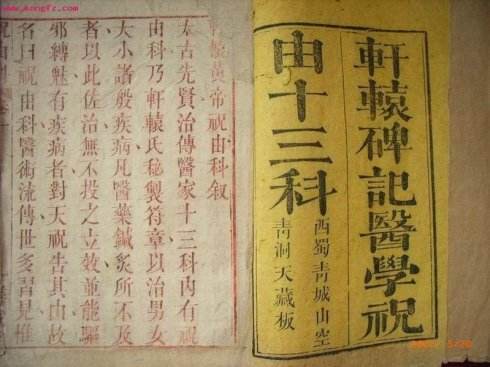 www.kongfz.com
軒轅碑記醫學祝
由十三科
西蜀青城山空
青洞天藏板
轅黃帝祝由科叙
太古先賢治傳醫家十三科內有祝
由科乃軒轅氏秘製符章以治男女
大小諸般疾病凡醫藥鍼炙所不及
者以此佐治無不投之立效並能驅
邪縛魅有疾病者對天祝告其由故
名曰祝由科醫術流傳世多習見惟